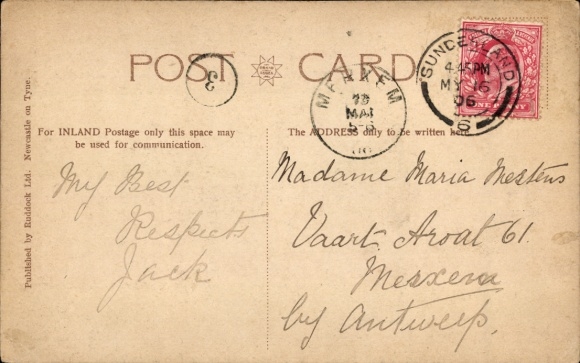 POST CARD
SUNDERLAND
4.45PM
MY 16
06
6
MERXEM
MAI
3
ONE PENNY
For INLAND Postage only this space may
be used for communication.
The ADDRESS only to be written here.
Published by Ruddock Ltd. Newcastle on Tyne.
My Best
Respects
Jack
Madame Maria Mestens
Vaart Aroat 61.
Merxem
by Antwerp.